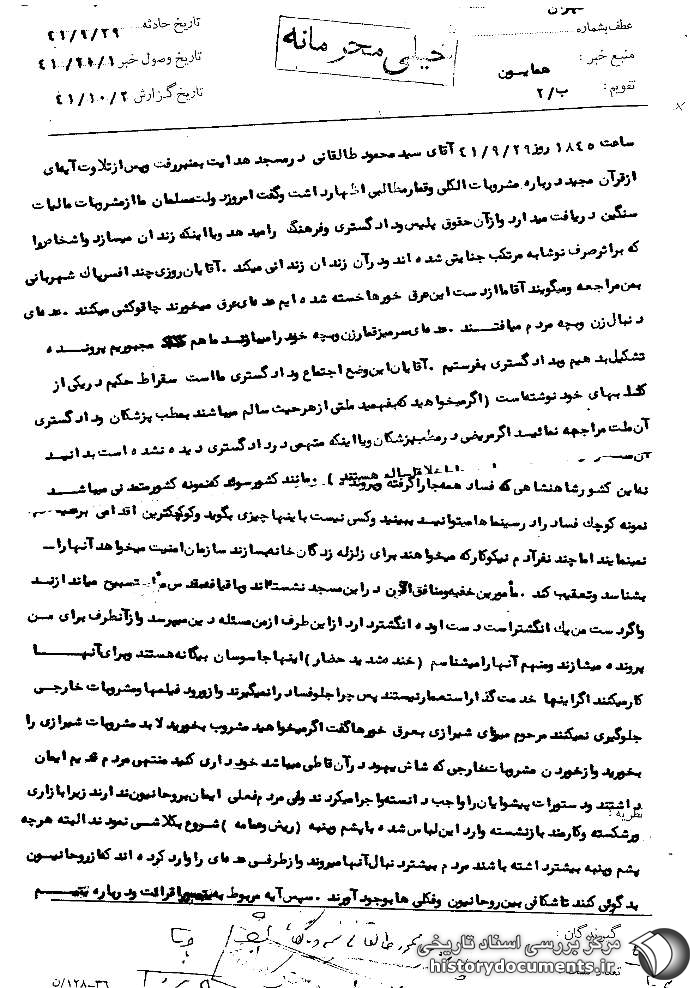 تهران
عطف بشماره
منبع خبر : همایون
تقویم : ب/۲
خیلی محرمانه
تاریخ حادثه ۴۱/۹/۲۹
تاریخ وصول خبر ۴۱/۱۰/۱
تاریخ گزارش ۴۱/۱۰/۲
ساعت ۱۸۴۵ روز ۴۱/۹/۲۹ آقای سید محمود طالقانی در مسجد هدایت بمنبر رفت وپس از تلاوت آیه‌ای
از قرآن مجید درباره مشروبات الکلی وقمار مطالبی اظهار داشت وگفت امروز دولت مسلمان ما از مشروبات مالیات
سنگین دریافت میدارد واز آن حقوق پلیس ودادگستری وفرهنگ را میدهد ویا اینکه زندان میسازد واشخاص را
که براثر صرف نوشابه مرتکب جنایتی شده اند در آن زندان زندانی میکند . آقایان روزی چند افسر پاک شهربانی
بمن مراجعه ومیگویند آقا ما از دست این عرق خورها خسته شده ایم عده‌ای عرق میخورند چاقوکشی میکنند . عده‌ای
دنبال زن وبچه مردم میافتند . عده‌ای سر میز قمار زن وبچه خود را میبازند ما هم مجبوریم پرونده
تشکیل بدهیم وبدادگستری بفرستیم . آقایان این وضع اجتماع ودادگستری ما است سقراط حکیم در یکی از
کتابهای خود نوشته است (اگر میخواهید که بفهمید ملتی از هر حیث سالم میباشند بمطب پزشکان ودادگستری
آن ملت مراجعه نمائید اگر مریضی در مطب پزشکان ویا اینکه متهمی در دادگستری دیده نشده است بدانید
هستند )
نه این کشور شاهنشاهی که فساد همه جا را گرفته ومانند کشور سوئد که نمونه کشور متمدنی میباشد
نمونه کوچک فساد را در سینماها میتوانید ببینید وکسی نیست باینها چیزی بگوید وکوچکترین اقدامی
نمینمایند اما چند نفر آدم نیکوکار که میخواهند برای زلزله زدگان خانه بسازند سازمان امنیت میخواهد آنها را
بشناسد وتعقیب کند . مأمورین خفیه ومنافق الان در این مسجد نشسته اند وباقیافه مقدس تسبیح میاندازند
واگر دست من یک انگشتر است دست او ده انگشتر دارد از این طرف از من مسئله دین میپرسد واز آنطرف برای من
پرونده میسازند ومنهم آنها را میشناسم (خنده شدید حضار) اینها جاسوسان بیگانه هستند وبرای آنها
کار میکنند اگر اینها خدمت گذار استعمار نیستند پس چرا جلو فساد را نمیگیرند واز ورود فیلمها ومشروبات خارجی
جلوگیری نمیکنند مرحوم میرزای شیرازی بعرق خورها گفت اگر میخواهید مشروب بخورید لابد مشروبات شیرازی را
بخورید واز خوردن مشروبات خارجی که شاش یهود در آن قاطی میباشد خودداری کنید منتهی مردم قدیم ایمان
داشتند ودستورات پیشوایان را واجب دانسته واجرا میکردند ولی مردم فعلی ایمان بروحانیون ندارند زیرا بازاری
نظریه :
ورشکسته وکارمند بازنشسته وارد این لباس شده با پشم وپنبه (ریش وعمامه ) شروع بکلاشی نمودند البته هرچه
پشم وپنبه بیشتر داشته باشند مردم بیشتر دنبال آنها میروند واز طرفی عده‌ای را وارد کرده اند که از روحانیون
بدگوئی کنند تا شکافی بین روحانیون وفکلی ها بوجود آورند . سپس آیه مربوط به یتیم را قرائت ودرباره یتیم
گیرندگان :
مرکز بررسی اسناد تاریخی
historydocuments.ir
۱۲۸-۳۶/ن